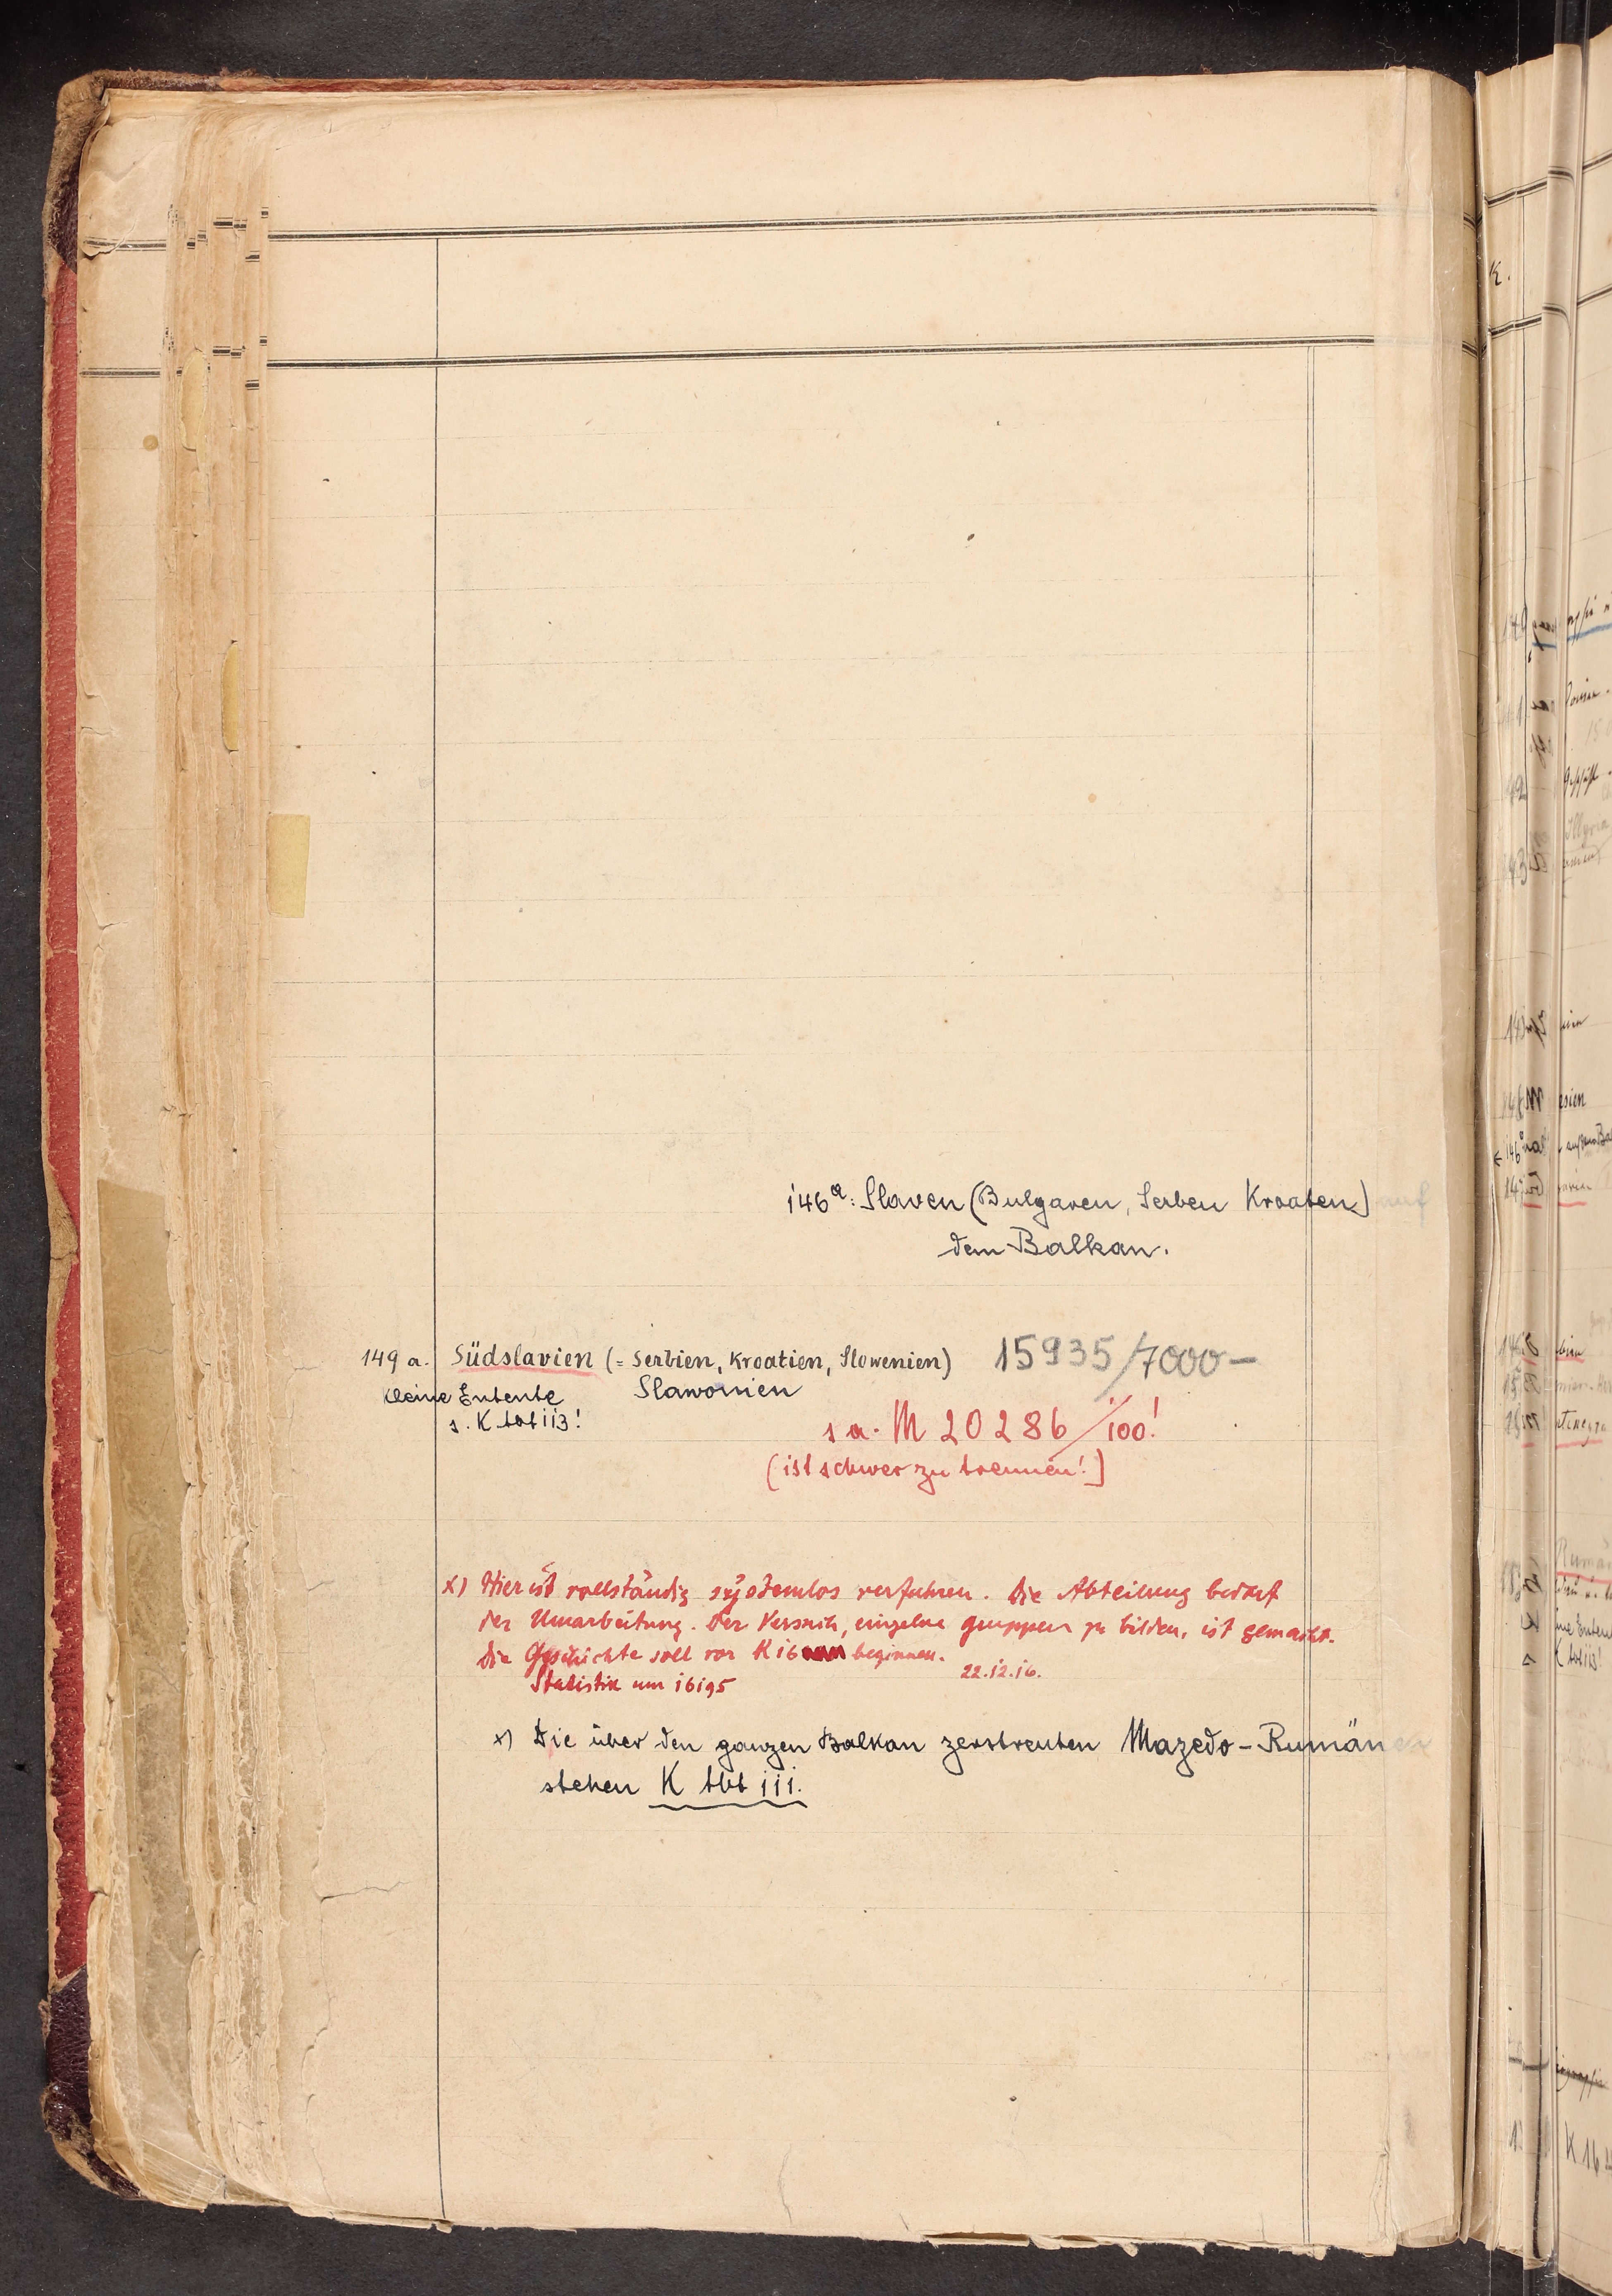 146a: Slaven (Bulgaren, Serben Kroaten) auf
dem Balkan.
149 a. Südslavien (= Serbien, Kroatien, Slowenien) 15935/7000-
Slawonien
Kleine Entente
s. K tbt 113!
s a. M 20286/100!
(ist schwer zu trennen!)
x) Hier ist vollständig systemlos verfahren. Die Abteilung bedarf
der Umarbeitung. Der Versuch, einzelne Gruppen zu bilden, ist gemacht.
Die Geschichte soll vor K 16 beginnen.
Statistik um 16195 22.12.16.
x) Die über den ganzen Balkan zerstreuten Mazedo-Rumänen
stehen K tbt 111.